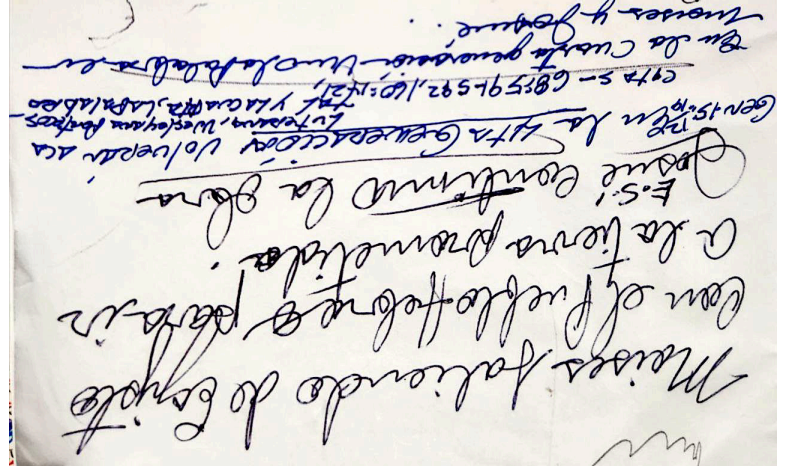 Moises saliendo de Egipto
con el pueblo Hebreo para ir
a la tierra prometida.
Josué continuo la obra
E.S.!
Gen-15: En la 4ta Generación volverán acá
Luterana, Wesleyana Pentecos-
tal y la cuarta, la Palabra
cyts- 68:591-592, 160:1421,
En la Cuarta generación vino la Palabra en
Moises y Josue.